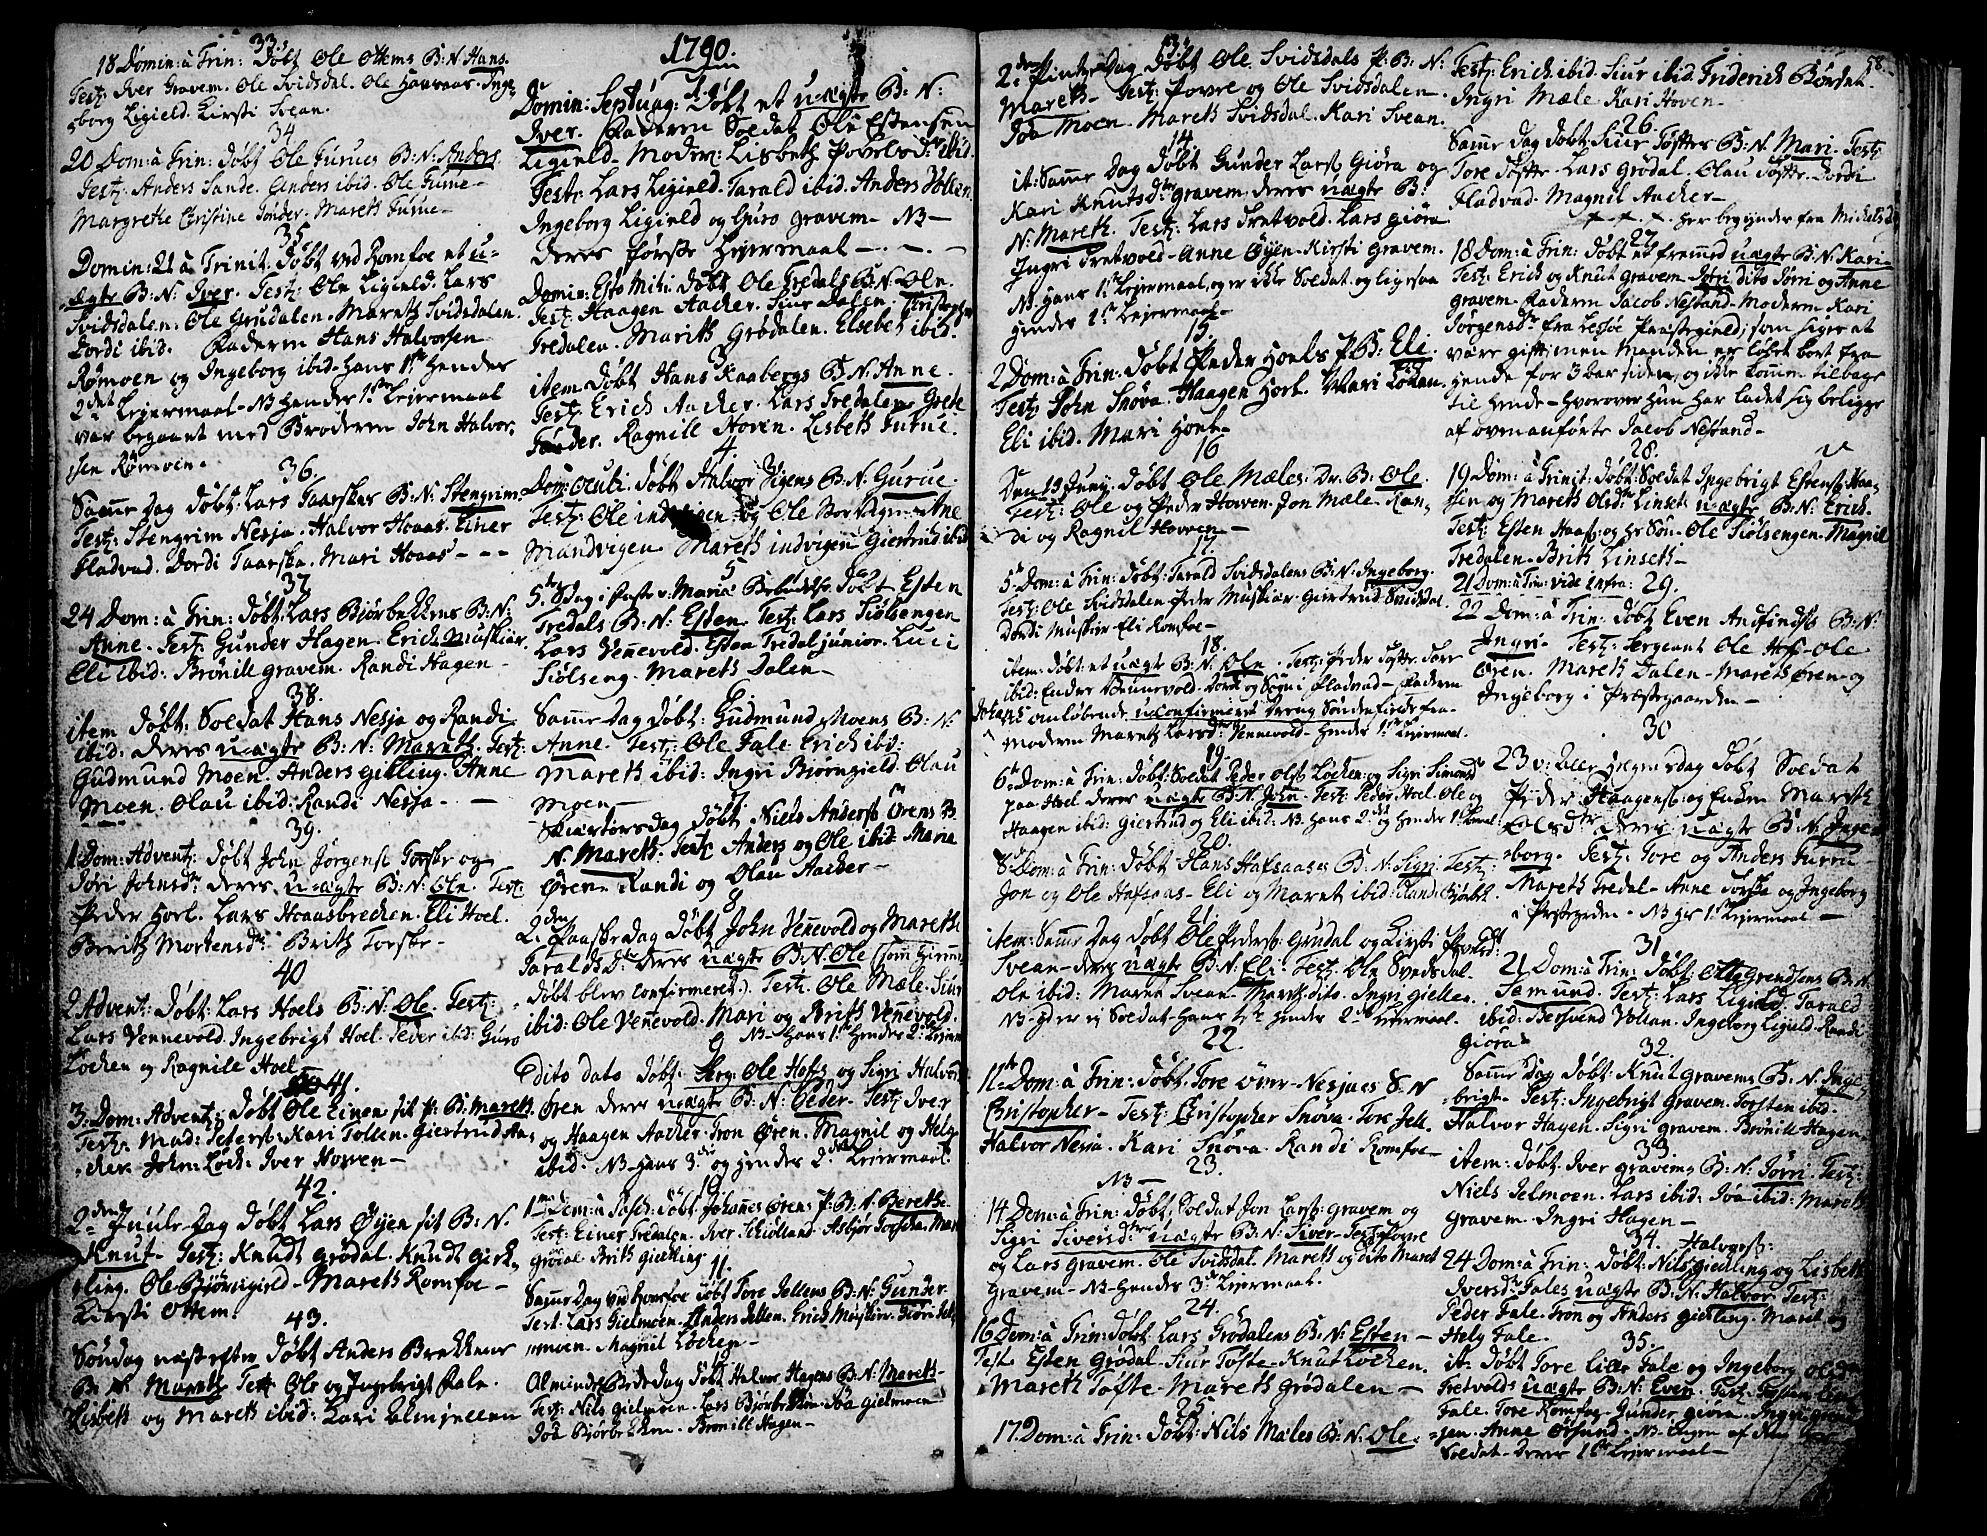 33.
18 Domin: à Trin: Døbt Ole Ottems B:N: Hans.
Test: Iver Gravem. Ole Svidsdal. Ole Hanraas. Inge-
borg Ligield. Kirsti Svean.
34
20 Dom: à Trin: døbt Ole Furues B:N: Anders
Test: Anders Sande. Anders ibid. Ole Furue-
Margrethe Christine Tønder. Mareth Furue-
35
Domin: 21 à Trinit: Døbt ved Romfoe et u-
ægte B:N: Iver. Test: Ole Ligield. Lars
Svidsdalen: Ole Grudalen. Mareth Svidsdalen.
Dordi ibid. Faderen Hans Halvorsen
Rømoen og Ingeborg ibid. Hans 1ste Hendes
2det Lejermaal - NB Hendes 1ste Lejermaal
var begaaet med Broderen John Halvor-
sen Rømoen.
36.
Samme Dag døbt: Lars Taarskes B:N: Stengrim
Test: Stengrim Nesja. Halvor Hoaas. Einer
Fladvad. Dordi Taarske. Mari Hoaas - - -
37
24 Dom: à Trin: døbt: Lars Bjørbekkens B:N:
Anne. Test: Gunder Hagen. Erich Muskiar.
Eli ibid: Brønill Gravem. Randi Hagen -
38.
item døbt: Soldat Hans Nesja og Randi
ibid. deres uægte B:N: Mareth. Test:
Gudmund Moen. Anders Gikling. Anne
Moen. Olau ibid: Randi Nesja. -
39.
1 Dom: Advent: døbt John Jørgens: Torske og
Jøri Johnsdr deres uægte B:N: Ole. Test:
Peder Hoel. Lars Hoaasbrecken. Eli Hoel.
Berith Mortensdr. Brith Torske-
40
2 Advent: Døbt: Lars Hoels B:N: Ole. Test:
Lars Vennevold. Ingebrigt Hoel. Peder ibid: Guro
Løcken og Ragnile Hoel
41.
3: Dom: Advent: Døbt Ole Einen sit P:B: Mareth
Test: Mad: Peters: Kari Tollen. Giertrud Aa-
cker. John: Løck. Iver Howen-
42.
2den Juule-Dag døbt Lars Øyen sit B:N:
Knut- Test: Knudt Grødal. Knudt Gick-
ling. Ole Bjørngield- Mareth Romfoe-
Kirsti Ottem.
43.
Søndag næst efter Døbt Anders Brekkens
B:N: Mareth Test: Ole og Ingebrigt Fale.
Lisbeth og Mareth ibid: Kari Almskeeen
1790.
1
Domin: Septuag: Døbt et uægte B:N:
Iver. Faderen Soldat Ole Estensen
Ligield- Moder: Lisbeth Povelsdr ibid.
Test: Lars Ligield. Tarald ibid. Anders Vollen.
Ingeborg Ligield og Guro Gravem- NB-
deres første Lejermaal-
2
Domin: Esto Mihi: Døbt Ole Tredals B:N: Ole.
Test: Haagen Aacker. Siur Dalen. Christopher
Tredalen. Marith Grødalen. Elsebet ibid.
3
item Døbt Hans Kaabergs B:N: Anne.
Test: Erich Aacker. Lars Tredalen. Grete
Tønder. Ragnill Hoven. Lisbeth Furue.
4
Dom: Oculi. Døbt Halvor Vigens B:N: Gurue
Test: Ole indvigen og Ole Storvigen. Ane
Mandvigen Mareth indvigen Giertrud ibid
5
5te Sdag i Faste v: Mariæ Bebudels: døbt Esten
Tredals B:N: Esten. Test: Lars Siølsengen
Lars Vennevold. Esten Tredal junior. Luci
Siølseng. Mareth Dalen-
6
Samme Dag døbt: Gudmund Moens B:N:
Anne. Test: Ole Fale. Erich ibid:
Mareth ibid: Ingri Bjørngield. Olau
Moen-
7
Skiærtorsdag døbt Niels Anders: Ørens B.
N. Mareth. Test: Anders og Ole ibid. Maria
Øren- Randi og Olau Aacker-
8
2den Paaske Dag døbt John Vennevold og Mareth
Taraldsdr deres uægte B:N: Ole (som hiemme
døbt blev confirmeret). Test: Ole Mæle. Siur
ibid: Ole Vennevold. Mari og Brith Vennevold.
NB- Hans 1ste Hendes 2det Lejerm:
9
dito dato døbt: Serg: Ole Hofs og Sigri Halvors
Øren deres uægte B:N: Peder. Test: Iver
og Haagen Aacker. Tron Øren. Magnil og Helg
ibid. NB- Hans 3die og Hendes 2det Lejermaal-
10
1ma Dom: à Pasch: døbt Johannes Ørens P:B:N: Bereth-
Test: Einer Tredalen. Iver Schiølland. Asbjør Torske. Mar:
Grødal- Brith Gickling
11.
Samme Dag ved Hvasfoe døbt Tore Jellens B:N: Gunder
Test: Lars Gielmoen. Anders Jellen. Erich Muskiar. Giøri Jel-
moen. Magnil Løcken-
12
Almindel: Bededag døbt Halvor Hagens B:N: Mareth-
Test: Nils Gielmoen. Lars Bjørbecken. Joa Gielmoen
Joa Bjørbecken. Brønill Hagen-
13.
2den Pintze Dag døbt Ole Svidsdals P:B:N:
Mareth- Test: Povre og Ole Svidsdalen-
Joa Moen. Mareth Svidsdal. Kari Svean.
14
it: Samme Dag døbt Gunder Lars: Giøra og
Kari Knutsdr Gravem. deres uægte B:
N: Mareth. Test: Lars Tretvold. Lars Giøra
Ingri Tretvold- Anne Øyen. Kirsti Gravem.
NB. Hans 1ste Lejermaal, og er ikke Soldat, og ligesaa
hendes 1ste Lejermaal-
15
2 Dom: à Trin: døbt Peder Hoels P:B: Eli
Test: John Snøva. Haagen Hoel. Mari Løkan.
Eli ibid. Mari Hoel-
16
Den 19 Junij. døbt Ole Mæles: Dr: B: Ole.
Test: Ole og Peder Howen. Jon Mæle. Ran-
di og Ragnil Howen-
17.
5te Dom: à Trin: døbt: Tarald Svidsdalens B:N: Ingeborg.
Test: Ole Svidsdalen. Peder Muskiær. Giertrud Svidsdal.
Dordi Muskiær. Eli Romfoe-
18.
item: døbt et uægte B:N: Ole. Test: Peder Tofte. Tore
ibid: Ender Brunevold. Dordi og Sigri Fladvad- Faderen
Johans omløbende uconfirmeret dreng Søndenfields fra-
Moderen Mareth Larsdr Vennevold- Hendes 1ste Lejermaal.
19.
6te Dom: à Trin: døbt: Soldat Peder Ols: Løcken og Sigri Simonsdr
paa Hoel deres uægte B:N: John. Test: Peder Hoel. Ole og
Haagen ibid: Giertrud og Eli ibid: NB Hans 2det og Hendes 1ste Lejermaal.
20.
8 Dom: à Trin: døbt Hans Hafsaases B:N: Sigri. Test:
Jon og Ole Hafsaas- Eli og Maret ibid: Randi Bjørbek
21
item: Samme Dag døbt Ole Peders: Grudal og Kirsti Povelsdr
Svean- deres uægte B:N: Eli- Test: Ole Svedsdal.
Ole ibid: Maret Svean. Mareth dito. Ingri Gielten.
NB- Hd er ej Soldat- Hans 1te Hendes 2det Lejermaal.
22.
11te Dom: à Trin: døbt: Tore over-Nesjaes B:N
Christopher- Test: Christopher Snøva. Tore Jell.
Halvor Nesia. Kari Snøva. Randi Romfoe-
23.
NB-
14 Dom: à Trin: døbt: Soldat Jon Lars: Gravem og
Sigri Siversdr uægte B:N: Siver- Test: Povre
og Lars Gravem. Ole Svidsdal. Mareth og dito Maret
Gravem- NB- Hendes 3die Lejermaal.
24.
16 Dom: à Trin: døbt: Lars Grødalens B:N: Esten-
Test: Esten Grødal. Siur Tofte- Knut Løcken.
Mareth Tofte- Mareth Grødalen-
25
17. Dom: à Trin: døbt: Nils Mæles B:N: Ole.
58.
Test: Erich ibid. Siur ibid. Friderich Børset.
Ingri Mæle. Kari Hoven-
26.
Samme Dag døbt: Siur Toftes B:N: Mari. Test:
Tore Tofte- Lars Grødal. Olau Tofte. Dordi
Fladvad. Magnil Aacker-
Her begynder fra Michelsdag
27
18 Dom: à Trin: døbt et fremmed uægte B:N: Kari-
Test: Erich og Knut Gravem. Jøri dito Jørri og Anne
Gravem. Faderen Jacob Nestand- Moderen Kari
Jørgensdr fra Lessøe Præstegield; som siger at
være gift; men Manden er løbet bort fra
hende for 3 Aar siden, og ikke kommen tilbage
til hende- hvorover hun har ladet sig beligge
af ovenanførte Jacob Nestand-
28.
19 Dom: à Trinit: døbt: Soldat Ingebrigt Estens: Haa-
sen og Mareth Olsdr Linset uægte B:N: Erich.
Test: Esten Haas: og hs Søn- Ole Siølsengen. Magnil
Tredalen- Brith Linseth-
21 Dom: à Trin: vide infra: 29.
22 Dom: à Trin: døbt Even Andfinds: B:N:
Ingri. Test: Sergeant Ole Hofs- Ole
Øren. Mareth Dalen- Mareth Øren- og
Ingeborg i Præstegaarden-
30
23 v: Aller Helgens dag døbt Soldat
Peder Haagens: og Enken Mareth
Olsdr deres uægte B:N: Inge-
borg. Test: Tore og Anders Furru-
Mareth Tredal- Anne Torske og Ingeborg
i Præstegrden- NB Hs 1ste Lejermaal-
31
21 Dom: à Trin: døbt: Otte Grendsens B:N:
Samund. Test: Lars Ligield. Tarald
ibid: Bersvend Vollan. Ingeborg Ligield. Randi
Giøra-
32.
Samme Dag døbt: Knut Gravems B:N: Inge-
brigt- Test: Ingebrigt Gravem. Torsten ibid-
Halvor Hagen- Sigri Gravem. Brønill Hagen.
33.
item: døbt Iver Gravems B:N: Jørri. Test:
Niels Jelmoen. Lars ibid: Joa ibid: Mareth
Gravem. Ingri Hagen-
34. Halvors:
24 Dom: à Trin: døbt: Nils Giedling og Lisbeth
Iversdr Fales uægte B:N: Halvor. Test:
Peder Fale. Tron og Anders Gickling. Maret og
Helg Fale.
35.
it. døbt Tore lille Fale og Ingeborg Olsdr
Tretvolds uægte B:N: Even. Test: Torsten
Fale. Tore Romfog. Gunder Giøra. Ingri
sen. Anne Ørsund- NB- Ingen af dem
Soldat- Deres 1ste Lejermaal-